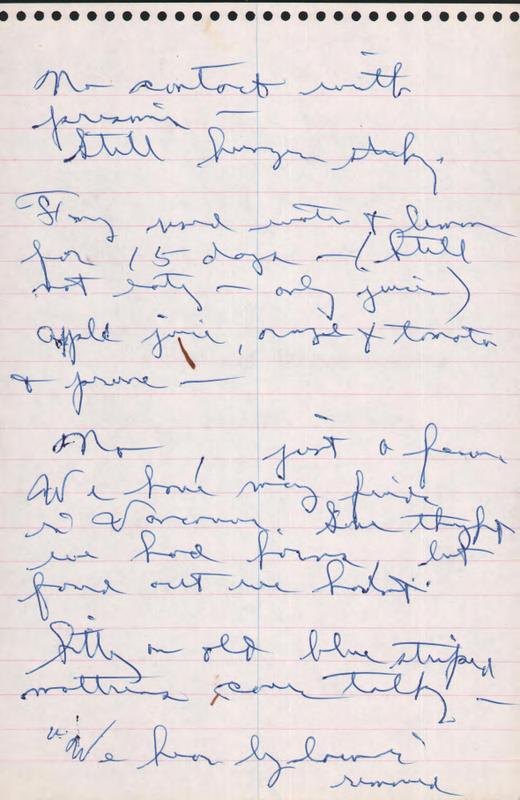 No contact with
prisoner —
Still hunger strike.
Stay used water & lemon
for 15 days — (Still
not eatg — only juices)
apple juice, orange & tomato
& prune —
No, just a few
We have many friends
in Vancouver. Some
we had        but
found out we hadn't.
Sittg on old blue striped
mattress cover talkg —
"We have      
removed